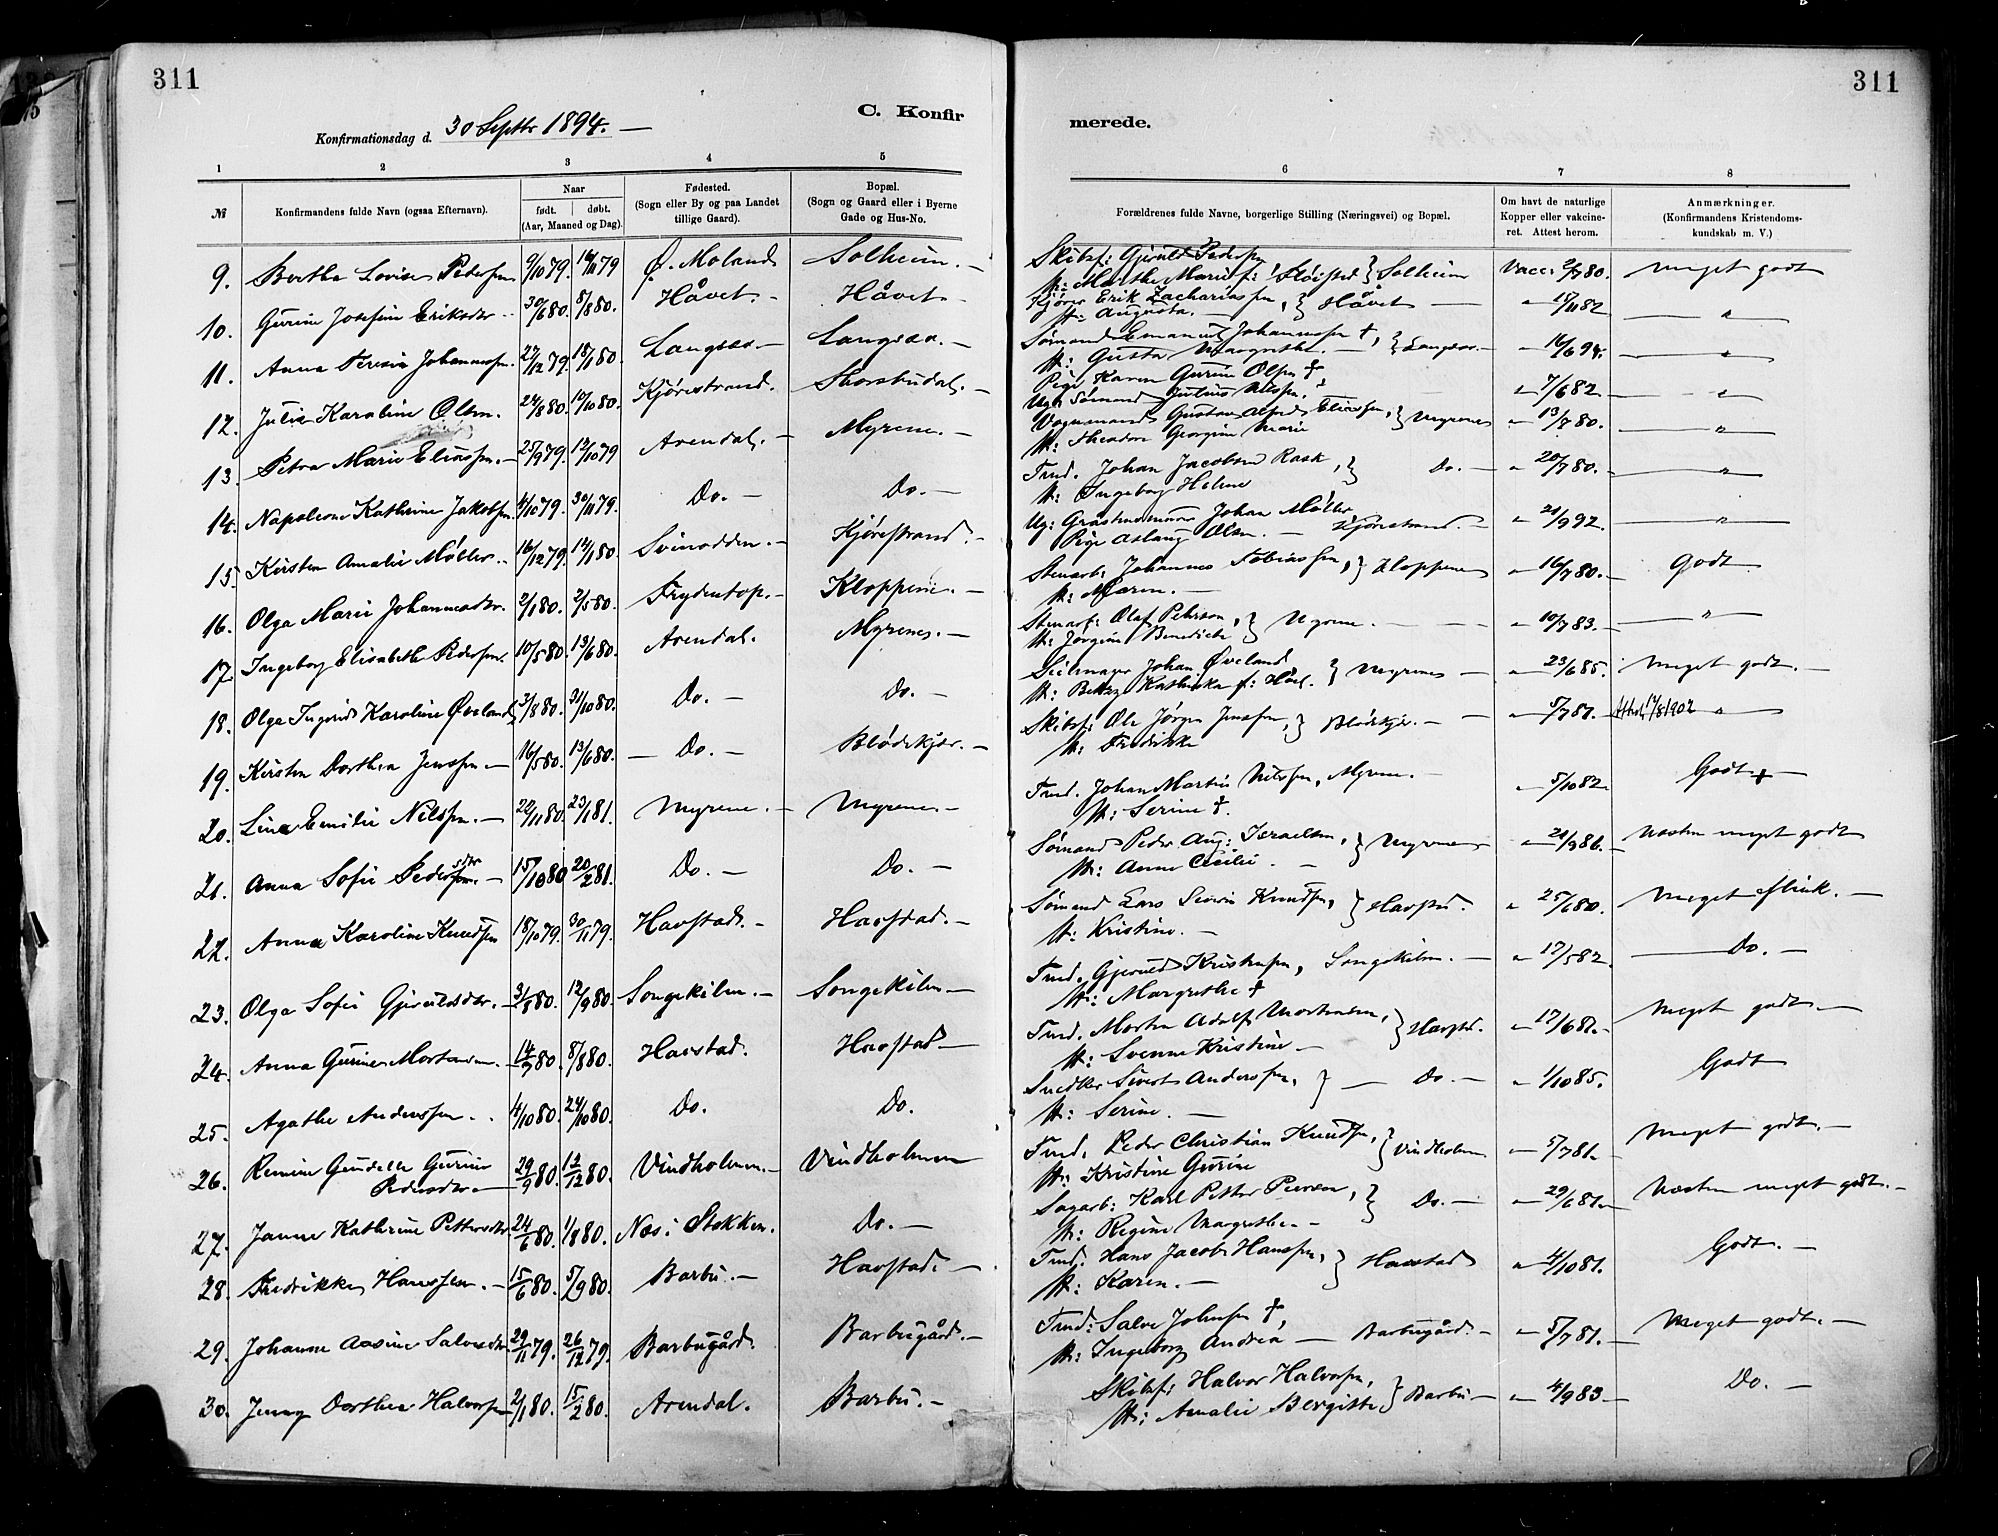 311
311
C. Konfir
merede.
Konfirmationsdag d. 30 Septbr 1894. —
1 2 3 4 5
6 7 8
№ Konfirmandens fulde Navn (ogsaa Efternavn). Naar født. døbt. (Aar, Maaned og Dag). Fødested. (Sogn eller By og paa Landet tillige Gaard). Bopæl. (Sogn og Gaard eller i Byerne Gade og Hus-No.
Forældrenes fulde Navne, borgerlige Stilling (Næringsvei) og Bopæl. Om havt de naturlige Kopper eller vakcineret. Attest herom. Anmærkninger. (Konfirmandens Kristendomskundskab m. V.)
9. Berthe Lovise Pedersen 9/10 79. 16/11 79 Ø. Moland Solheim. —
Skibsf: Gjeruld Pedersen
H: Marthe Marie f: Sløistad } Solheim Vacc: 2/7 80. Meget godt
10. Gurine Josefine Eriksdtr. 30/6 80. 8/8 80. Håvet. - Håvet -
Kjører Erik Zachariassen,
H: Augusta. — } Håvet — " 25/11 82 — " —
11. Anna Teresia Johannessen. 27/12 79. 18/1 80. Langsæ. — Langsæ. —
Sømand Emanuel Johannessen †,
H: Gusta Margrethe. — } Langsæ. — " 16/6 94. — " —
12. Julie Karoline Olsen. 24/8 80. 10/10 80. Kjørestrand. Storbudal. —
Pige Karen Gurine Olsen †
Ug: Sømand Julius Nilsen, " 7/6 82. — " —
13. Petra Marie Eliassen. — 25/9 79. 12/10 79 Arendal. — Myrene. —
Vognmand Gustav Alfred Eliassen,
H: Theodora Georgine Marie } Myrenes " 13/7 80. — " —
14. Napoleone Kathrine Jakobsen. 4/10 79. 30/11 79. Do. — Do. —
Tmd. Johan Jacobsen Rask,
H: Ingeborg Helene } Do. — " 20/7 80. — " —
15. Kirsten Amalie Møller. 16/12 79. 14/1 80 Svinodden. — Kjørestrand. —
Ug: Johan Møller,
Pige Aslaug Olsen. — Kjørestrand. — " 21/9 92. — " —
16. Olga Marie Johannesdtr. 2/1 80. 2/5 80. Frydentop. — Kloppene. —
Stenarb: Johannes Tobiassen,
H: Maren. — } Kloppene " 16/7 80. — Godt
17. Ingeborg Elisabethe Pedersen. 10/5 80. 13/6 80. Arendal. Myrenes. —
Stenarb: Olaf Pettersen,
H: Jørgine Benedicte } Myrene. — " 10/7 83. — " —
18. Olga Ingerid Karoline Øveland, 3/8 80. 31/10 80. Do. — Do. —
Seilmager Johan Øveland
H: Betzy Kathinka f: } Myrenes — " 23/6 85. Meget godt. —
19. Kirsten Dorthea Jenssen — 16/5 80. 13/6 80. — Do. — Blødekjær. —
Skibsf: Ole Jørgen Jenssen,
H: Fredrikke } Blødekjær. — " 5/7 81. — 1902 " —
20. Lina Emilie Nilssen. — 20/11 80. 23/1 81. Myrene. — Myrene. —
Tmd. Johan Martin Nilssen, Myrene. —
H: Serine †. " 5/10 82. Godt —
21. Anna Sofie Pedersdtr. — 15/10 80 20/2 81. Do. — Do. —
Sømand Peder Aug: Israelsen,
H: Anne Cecilie — } Myrenes — " 21/9 86. — Næsten meget godt
22. Anna Karoline Knudsen 18/10 79. 30/11 79. Havstad. — Havstad. —
Sømand Lars Severin Knudsen,
H: Kristine. — } Havstd. " 25/6 80. — Meget flink. —
23. Olga Sofie Gjeruldsdtr. — 3/8 80. 12/9 80. Songekilen. — Songekilen —
Tmd. Gjeruld Kristensen, Songekilen. —
H: Margrethe † " 17/5 82. — Do. —
24. Anna Gurine Mortensen — 14/7 80. 8/8 80. Havstad. Havstad —
Tmd. Morten Adolf Mortensen,
H: Svenne Kristine — } Havstd. " 17/6 81. — Meget godt. —
25. Agathe Anderssen. 4/10 80. 24/10 80. Do. Do.
Snedker Sivert Anderssen,
H: Serine. — } — Do. — " 1/10 85. Godt
26. Remine Gurine
Pedersdtr. — 29/9 80. 12/12 80. Vindholmen. — Vindholmen
Tmd. Peder Christian Knudsen,
H: Kristine Gurine } Vindholmen " 5/7 81. — Meget godt. —
27. Janne Kathrine Pettersdtr. 24/6 80. 1/8 80. Næs i Stokken. Do. —
Sagarb: Karl Petter Persen,
H: Regine Margrethe. — } Do. — " 29/6 81. — Næsten meget godt. —
28. Fredrikke Hanssen. — 15/6 80. 5/9 80. Barbu. — Havstad. —
Tmd. Hans Jacob Hanssen,
H: Karen. — } Havstad " 4/10 81. Godt. —
29. Johanne Aasine Salvesdtr. 29/11 79. 26/12 79. Barbugård. Barbugård. —
Tmd: Salve Johnsen †,
H: Ingeborg Andrea — Barbugård. — " 5/7 81. — Meget godt. —
30. Jenny Dorthea Halvorsen 2/1 80. 15/2 80. Arendal. Barbu. —
Skibsf: Halvor Halvorsen,
H: Amalie Bergitte } Barbu — " 4/9 83 — Do. —